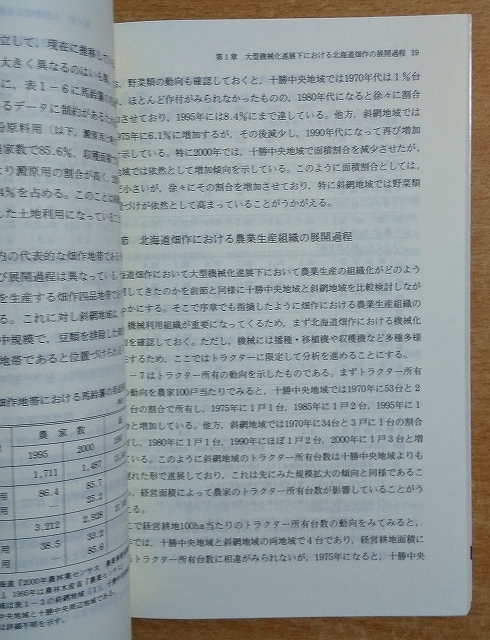 第1章 大型機械化進展下における北海道畑作の展開過程 19
野菜類の動向も確認しておくと，十勝中央地域では1970年代は1％台
ほとんど作付がみられなかったものの，1980年代になると徐々に割合
させており，1995年には8.4％にまで達している。他方，斜網地域では
75年に6.1％に増加するが，その後減少し，1990年代になって再び増加
示している。特に2000年では，十勝中央地域で面積割合を減少させたが，
域では依然として増加傾向を示している。このように面積割合としては，
だ小さいが，徐々にその割合を増加させており，特に斜網地域では野菜類
づけが依然として高まっていることがうかがえる。
節 北海道畑作における農業生産組織の展開過程
海道畑作において大型機械化進展下において農業生産の組織化がどのよう
開してきたのかを前節と同様に十勝中央地域と斜網地域を比較検討しなが
かにする。そこで序章でも指摘したように畑作における農業生産組織の
機械利用組織が重要になってくるため，まず北海道畑作における機械化
を確認しておく。ただし，機械には播種・移植機や収穫機など多種多様
するため，ここではトラクターに限定して分析を進めることにする。
－7はトラクター所有の動向を示したものである。まずトラクター所有
の動向を農家100戸当たりでみると，十勝中央地域では1970年に53台と2
台の割合で所有し，1975年に1戸1台，1985年に1戸2台，1995年に1
台と増加している。他方，斜網地域では1970年に34台と3戸に1台の割合
有し，1980年に1戸1台，1990年にほぼ1戸2台，2000年に1戸3台と増
ている。このように斜網地域のトラクター所有台数は十勝中央地域よりも
遅れた形で進展しており，これは先にみた規模拡大の傾向と同様であるこ
，経営面積によって農家のトラクター所有台数が影響していることがう
る。
こで経営耕地100ha当たりのトラクター所有台数の動向をみてみると，
年では，十勝中央地域と斜網地域の両地域で4台であり，経営耕地面積に
るトラクター所有台数に相違がみられないが，1975年になると，十勝中央
立して，現在に推移して
大きく異なるのはいも
に，表1－6に馬鈴薯
るデータに制約があるため
粉原料用（以下，澱原用
農家数で85.6％，収穫面積
より澱原用の割合が高く，
4％を占める。このことは
した土地利用になっているこ
内の代表的な畑作地帯である
び展開過程は異なっている。
を生産する畑作四品地帯
る。これに対し斜網地域は，
中規模で，豆類を排除した
地帯であると位置づけられる
畑作地帯における馬鈴薯の
農家数
1995 2000
1,711 1,487
用 86.4 85.7
— 25.2
3,212 2,928
用 38.5 33.2
用 — 85.6
海道『2000年農林業センサス
』，1995年は農林水産省『農業センサス
域は表1－3の斜網地域
中央地域と十勝中央周辺地域である。
は詳細不明を示す。